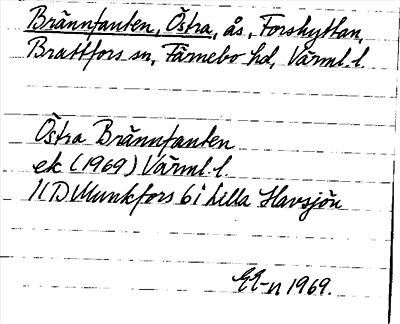 Brännfanten, Östra, ås, Forshyttan,
Brattfors sn, Färnebo hd, Värml. l.
Östra Brännfanten
ek (1969) Värml. l.
11D Munkfors 6i Lilla Havsjön
EE-n 1969.